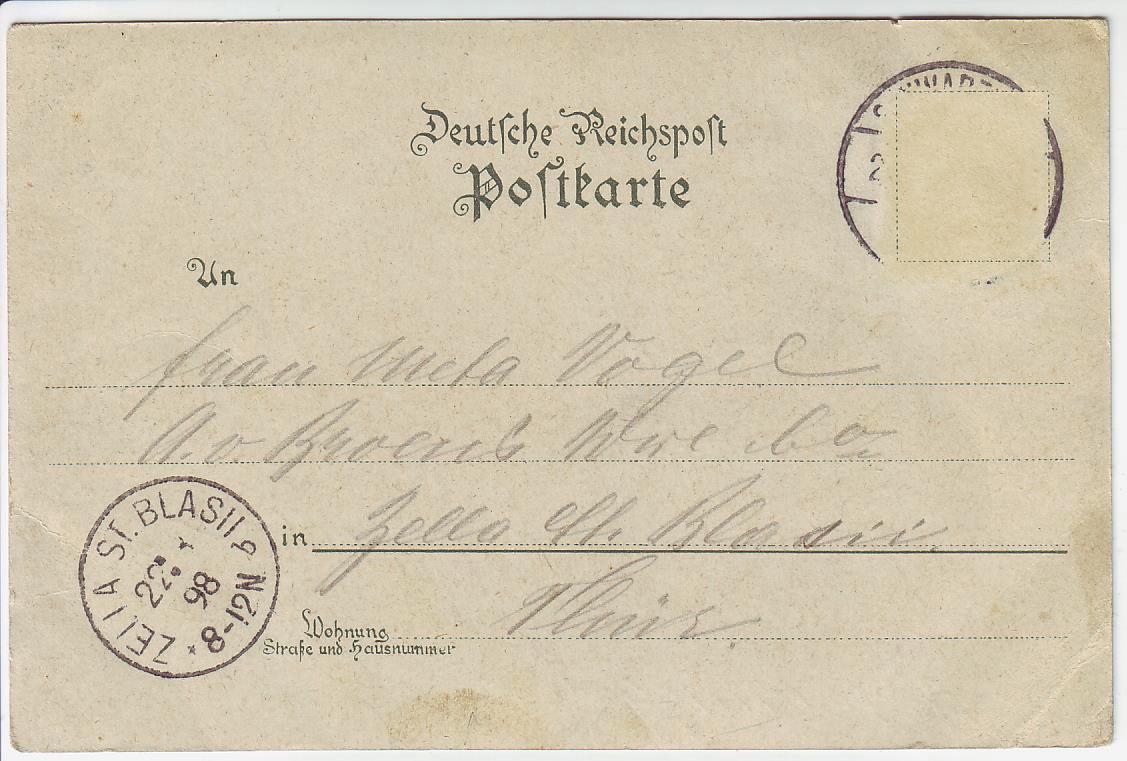 Deutsche Reichspost
Postkarte
An
Frau Meta Vogel
in Zella St. Blasii
Thür
Wohnung
Straße und Hausnummer
ZELLA ST. BLASII b
22
98
* 8-12N